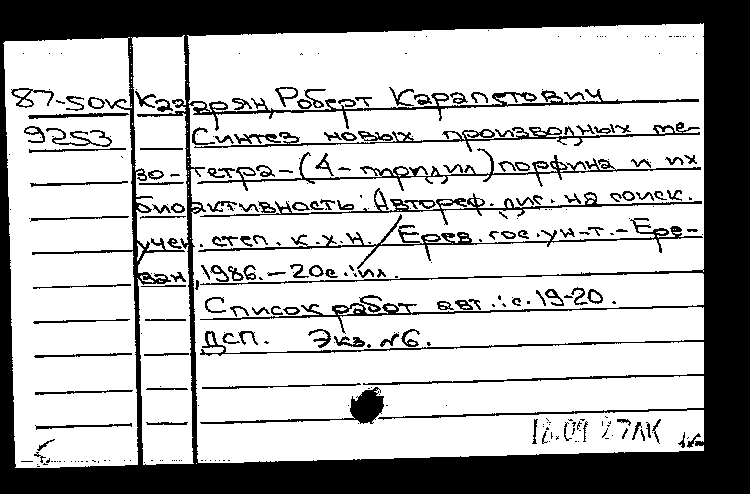 87-50К Казарян, Роберт Карапетович
9253 Синтез новых производных ме-
зо-тетра-(4-пиридил)порфина и их
биоактивность: Автореф. дис. на соиск.
учен. степ. к.х.н. / Ерев. гос. ун-т. - Ере-
ван, 1986. - 20с.: ил.
Список работ авт.: с. 19-20.
ДСП. Экз. №6.
18.09 87ЛК